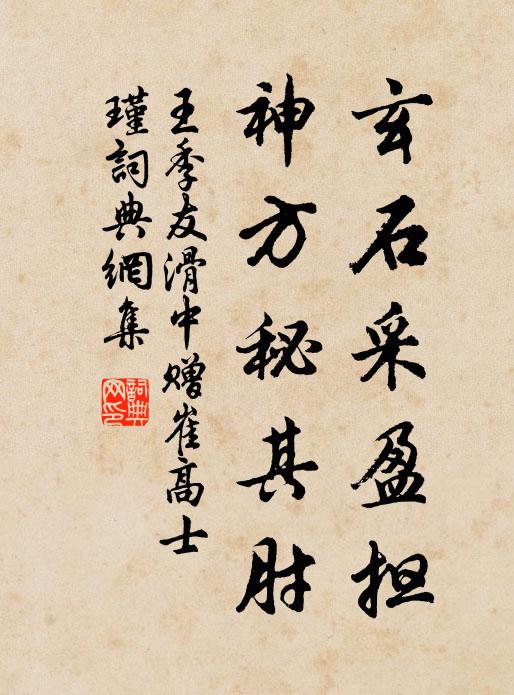 玄石采盈担
神方秘其肘
王季友滑中赠崔高士
瑾詞典網集
詞典网印